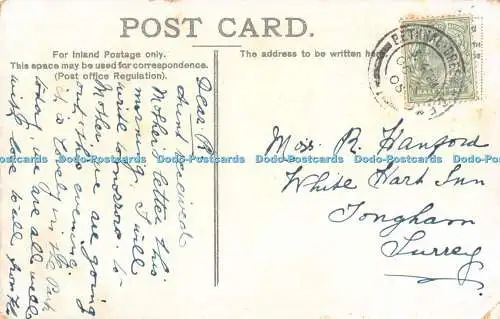 POST CARD.
For Inland Postage only.
This space may be used for correspondence.
(Post office Regulation).
The address to be written here.
Dear R
Aunt received
Mother letter this
morning. I will
write tomorrow to
Mother, we are going
out this evening
it is lovely in the Park
today, we are all well
with love to all from
Miss. R. Hanford
White Hart Inn
Tongham
Surrey.
Dodo-Postcards Dodo-Postcards Dodo-Postcards Dodo-Postcards